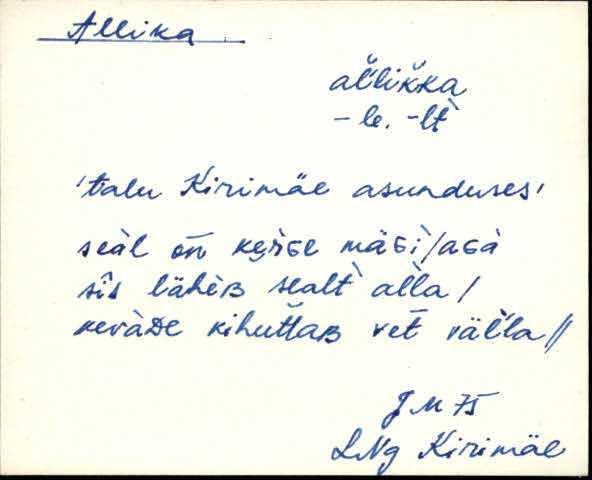 Allika
al̆likka
-le. -lt̀
'talu Kirimäe asunduses'
seàl o̅n keʀ̀ɢe mäɢì/aɢà
sîs lähèʙ sealt̀ al̀la/
kevàᴅe kihut̆taʙ vet̅ väl̆la//
J M 75
LNg Kirimäe